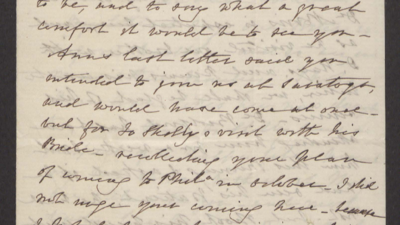 to be, and to say what a great
comfort it would be to see you -
Anns last letter said you
intended to join us at Saratoga,
and would have come at once
but for Jo Skelly's visit with his
Bride - recollecting your plan
of coming to Phila in October - I did
not urge your coming here - because